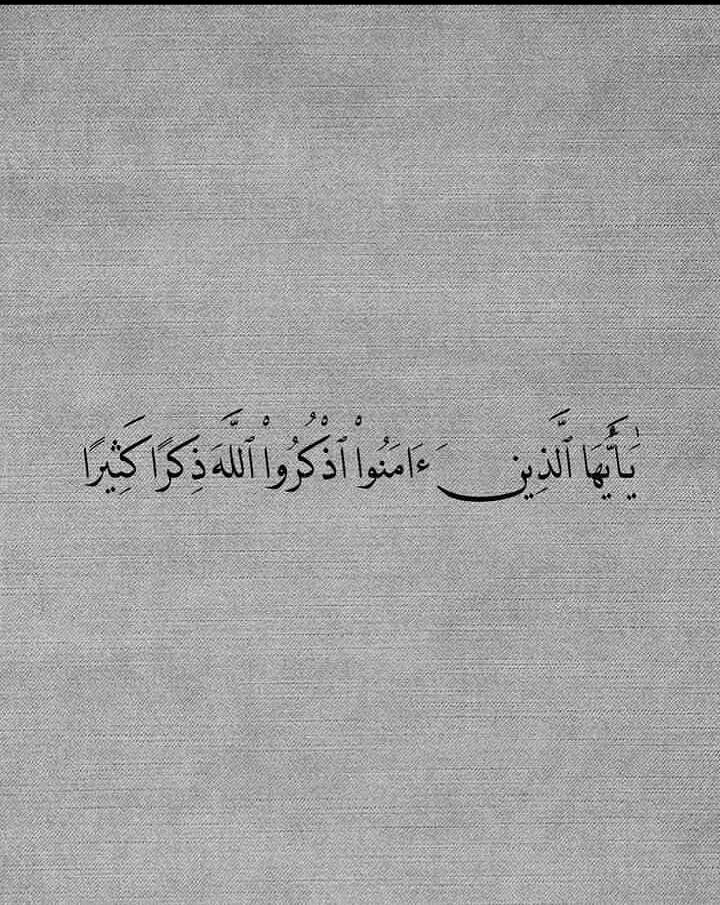 يَٰٓأَيُّهَا ٱلَّذِينَ ءَامَنُوا۟ ٱذْكُرُوا۟ ٱللَّهَ ذِكْرًا كَثِيرًا